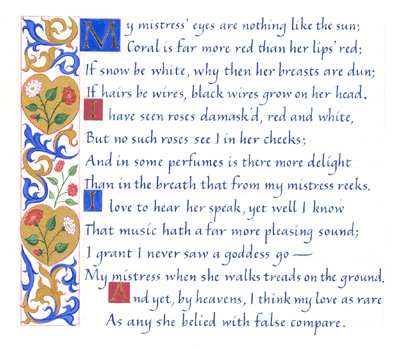 My mistress' eyes are nothing like the sun;
Coral is far more red than her lips' red;
If snow be white, why then her breasts are dun;
If hairs be wires, black wires grow on her head.
I have seen roses damask'd, red and white,
But no such roses see I in her cheeks;
And in some perfumes is there more delight
Than in the breath that from my mistress reeks.
I love to hear her speak, yet well I know
That music hath a far more pleasing sound;
I grant I never saw a goddess go —
My mistress when she walks treads on the ground.
And yet, by heavens, I think my love as rare
As any she belied with false compare.